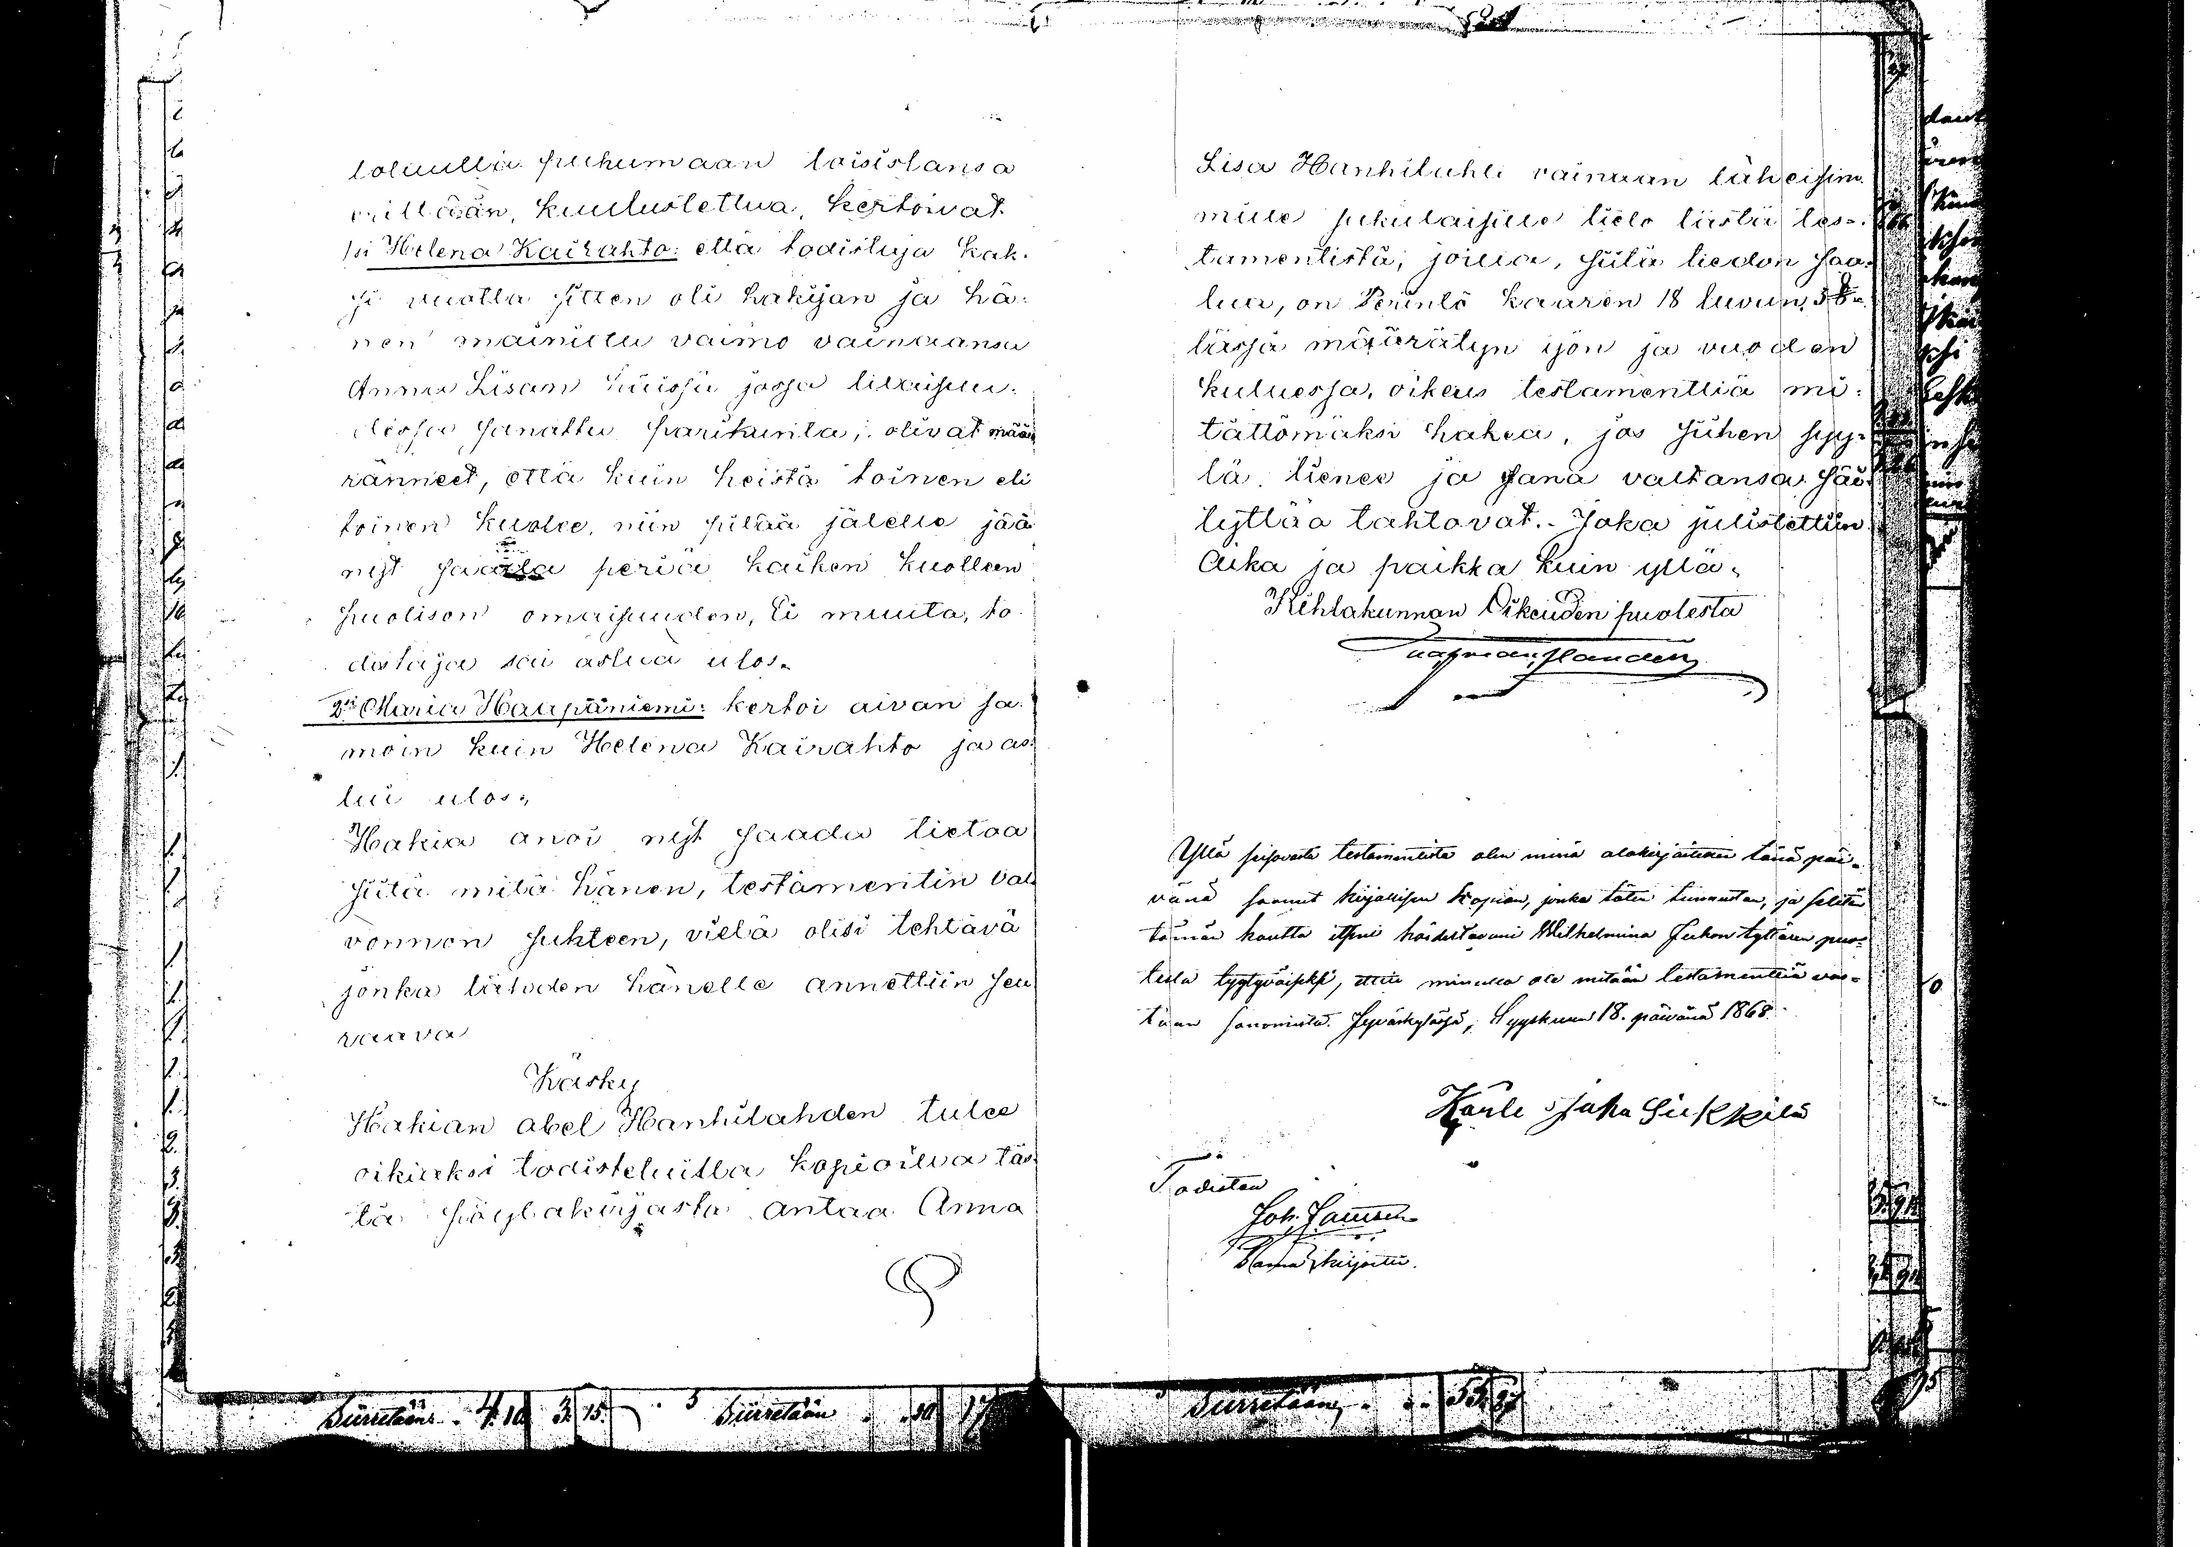 totuutta puhumaan toisistansa
erillään, kuulustettua, kertoivat.
1si Helena Kairahto: että todistuja kak-
si vuotta sitten oli hakijan ja hä-
nen mainittu vaimo vainaansa
Anna Lisan häissä jossa tilaisuu-
dessa sanattu pariskunta, olivat mää
ränneet, että kuin heistä toinen eli
toinen kuolee, niin pitää jälelle jää
nyt saada periä kaiken kuolleen
puolison omaisuuden, Ei muuta, to
distaja sai astua ulos.
2si Maria Haapaniemi: kertoi aivan sa-
moin kuin Helena Kairahto ja as-
tui ulos.
Hakia anoi nyt saada tietoa
siitä mitä hänen, testamentin val
vonnon suhteen, vielä olisi tehtävä
jonka tähden hänelle annettiin seu
raava
Käsky
Hakian abel Hanhilahden tulee
oikiaksi todisteluilla kopioilla täs-
tä pöytäkirjasta antaa Anna
Lisa Hanhilahti vainaan läheisim-
mille sukulaisille tieto tästä tes-
tamentistä, joilla, siitä tiedon saa-
tua, on Perintö kaaren 18 luvun, 5 §-
lässä määrätyn yön ja vuoden
kuluessa, oikeus testamenttiä mi-
tättömäksi hakea, jos siihen syy-
tä lienee ja sanä valtansa säi-
lyttää tahtovat.- Joka julistettiin
Aika ja paikka kuin yllä.
Kihlakunnan Oikeuden puolesta
Yllä seisovasta testamentista olen minä alakirjoittanut tänä päi-
vänä saanut kirjallisen kopian, jonka täten tunnustan, ja selitän
tämän kautta itseni hoidettavani Wilhelmina Juhon tyttären puo-
lesta tyytyväiseksi, ettei minulla ole mitään testamenttiä vas-
taan sanomista. Jyväskylässä, Syyskuun 18. päivänä 1868.
Kaarle Juha
Todistan
Joh.
Siirretään . 4.10 3.15. Siirretään
Siirretään